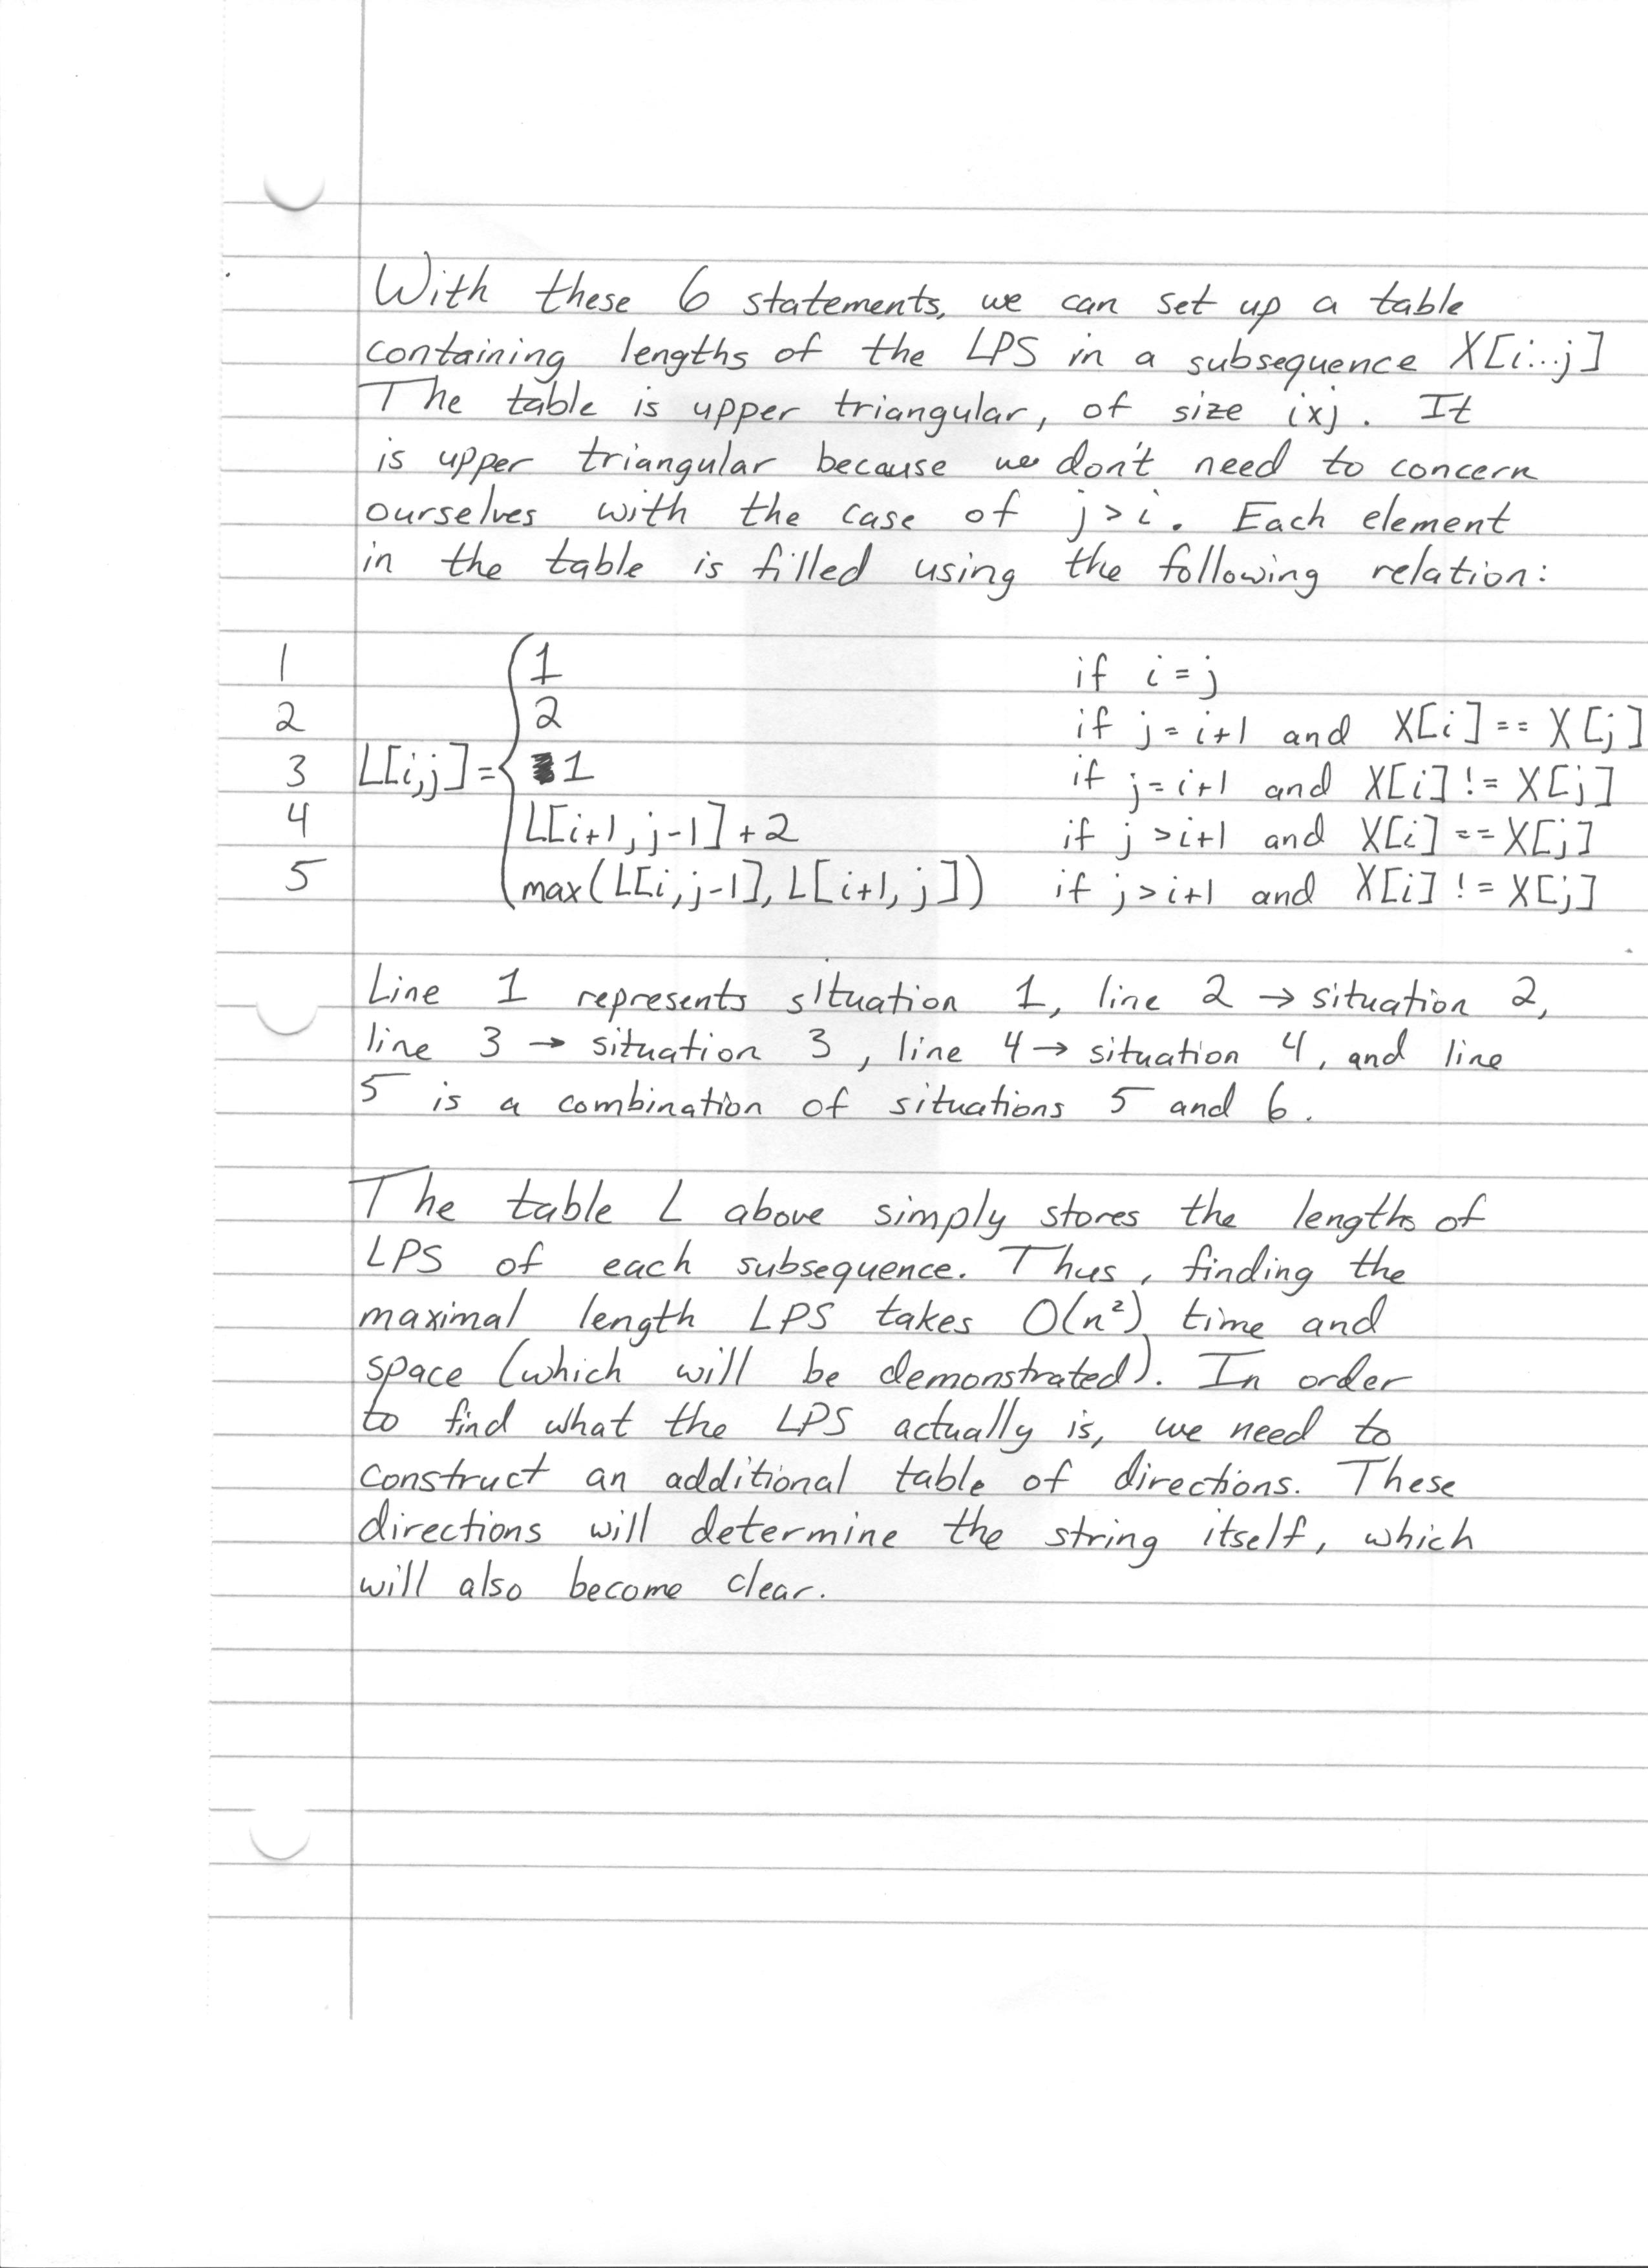 With these 6 statements, we can set up a table
containing lengths of the LPS in a subsequence X[i...j]
The table is upper triangular, of size ixj. It
is upper triangular because we don't need to concern
ourselves with the case of j>i. Each element
in the table is filled using the following relation:
1 1 if i=j
2 2 if j=i+1 and X[i]==X[j]
3 L[i,j]={ 1 if j=i+1 and X[i]!=X[j]
4 L[i+1,j-1]+2 if j>i+1 and X[i]==X[j]
5 max(L[i,j-1], L[i+1,j]) if j>i+1 and X[i]!=X[j]
Line 1 represents situation 1, line 2 → situation 2,
line 3 → situation 3, line 4 → situation 4, and line
5 is a combination of situations 5 and 6.
The table L above simply stores the lengths of
LPS of each subsequence. Thus, finding the
maximal length LPS takes O(n²) time and
space (which will be demonstrated). In order
to find what the LPS actually is, we need to
construct an additional table of directions. These
directions will determine the string itself, which
will also become clear.